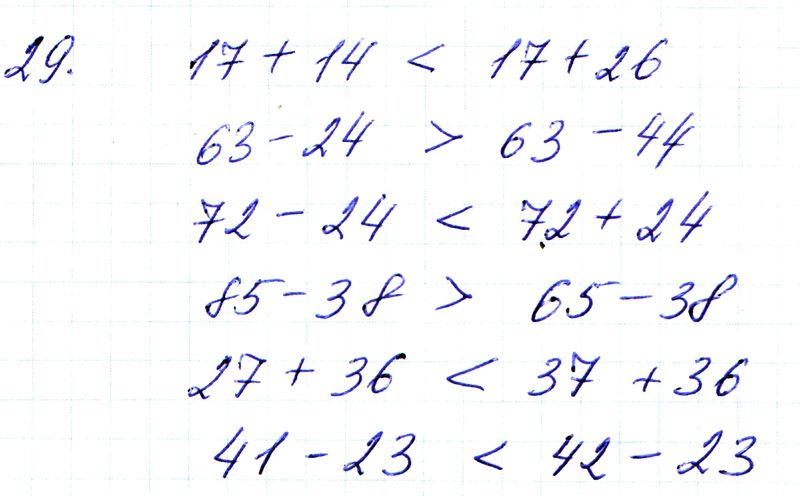 29. 17 + 14 < 17 + 26
63 - 24 > 63 - 44
72 - 24 < 72 + 24
85 - 38 > 65 - 38
27 + 36 < 37 + 36
41 - 23 < 42 - 23